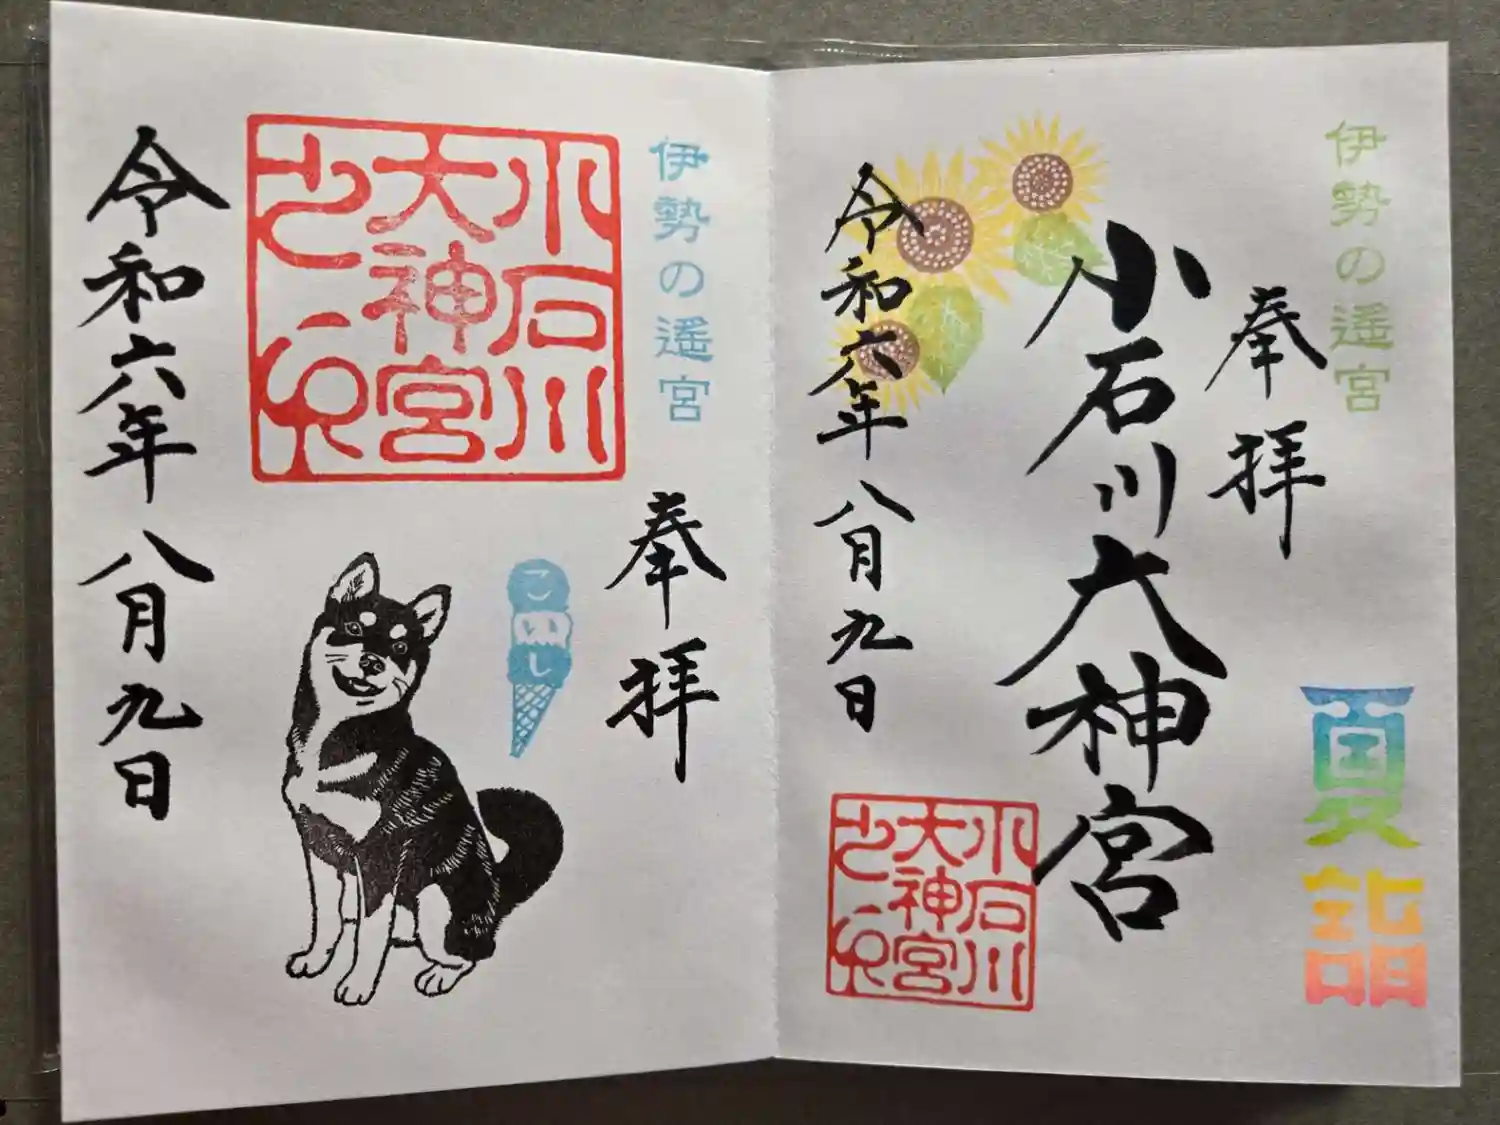 伊勢の遥宮
奉拝
小石川大神宮
令和六年八月九日
夏詣
小石川
大神宮
之印
伊勢の遥宮
奉拝
小石川
大神宮
之印
こいし
令和六年八月九日